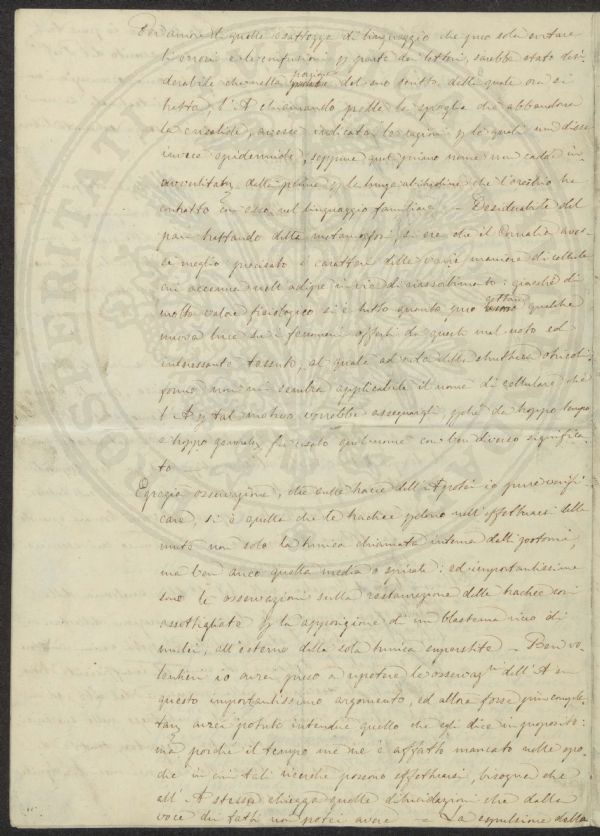 Per amore di quella esattezza di linguaggio che può sola evitare
gli errori e le confusioni p parte dei lettori, sarebbe stato desi-
derabile che nella nozione del suo scritto della quale ora si
tratta, l'A chiamando pelle la spoglia che abbandona
la crisalide, avesse indicata la ragione p la quale non disse
invece epidermide, seppure quel primo nome non cadde in-
avvertitam. dalla penna p la lunga abitudine che l'orecchio ha
contratto con esso nel linguaggio famigliare - Desiderabile del
pari trattando della metamorfosi, si era che il Cornalia aves-
se meglio precisato i caratteri delle varie maniere di cellule
cui accenna nell'adipe in via di riassorbimento: giacchè di
molto valore fisiologico si è tutto quanto può gettare qualche
nuova luce su i fenomeni offerti da questo mal noto ed
interessante tessuto, al quale ad onta della struttura otricoli-
forme non mi sembra applicabile il nome di cellulare che
l'A p tal motivo vorrebbe assegnargli, p chè da troppo tempo
e troppo generalm. fu usato quel nome con ben diverso significa-
to -
Egregia osservazione, che sulle tracce dell'A potei io pure verifi-
care, si è quella che le trachee pdono nell'effettuarsi della
muta non solo la tunica chiamata interna dagli zootomi,
ma ben anco quella media o spirale: ed importantissime
sono le osservazioni sulla restaurazione delle trachee così
assottigliate p la apposizione di un blastema ricco di
nuclei, all'esterno della sola tunica superstite - Ben vo-
lentieri io avrei preso a ripetere le osservaz.ni dell'A su
questo importantissimo argomento, ed allora forse più comple-
tam. avrei potuto intendere quello che egli dice in proposito:
ma poichè il tempo me ne è affatto mancato nelle epo-
che in cui tali ricerche possono effettuarsi, bisogna che
all'A stesso chiegga quelle dilucidazioni che dalla
voce dei fatti non potei avere - La espulsione della